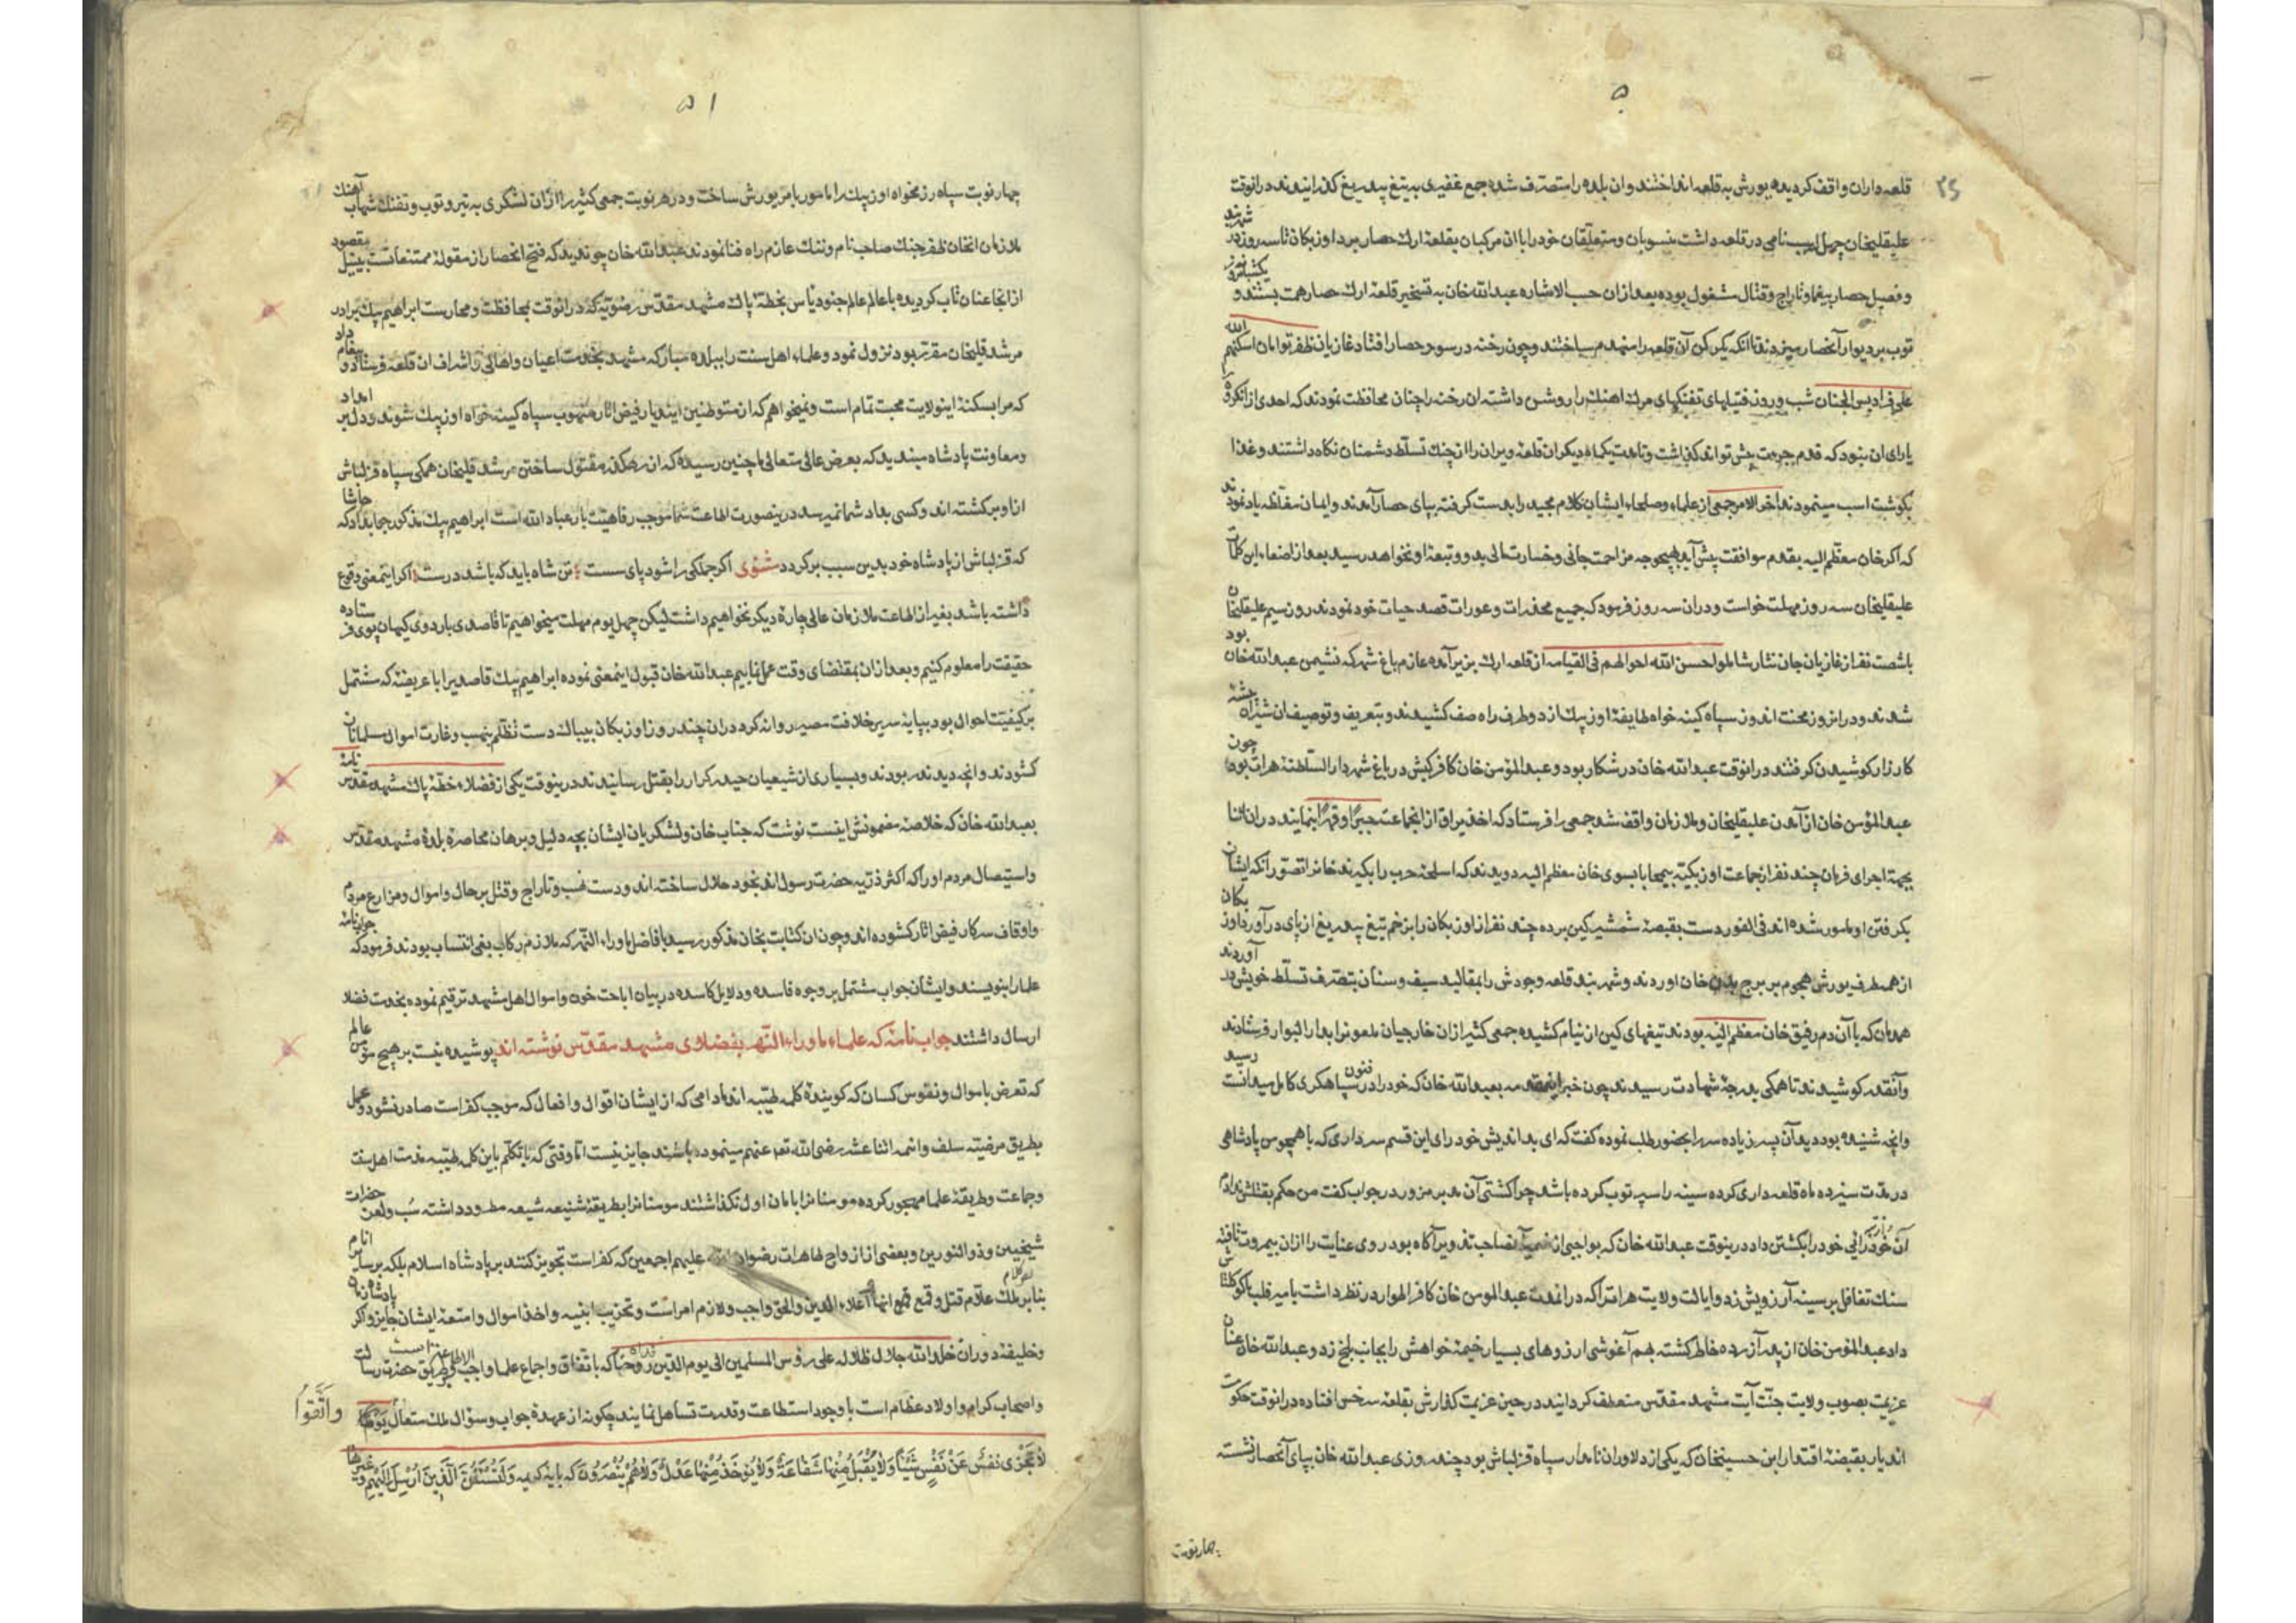 ۵۰
۲۵
قلعه داران واقف کردیده یورش به قلعه انداختند و ان بلده را متصرف شده جمع غفیری به تیغ بیدریغ کذرانیدند درانوقت
علیقلیخان چهل اسب نامی در قلعه داشت منسوبان و متعلقان خود را با ان مرکبان بقلعه ارک حصار برد اوزبکان تا سه روز در شهربند
و فصیل حصار بیغما و تاراج و قتال مشغول بوده بعد ازان حسب الاشاره عبدالله خان به تسخیر قلعه ارک حصار همت بستند و یکشبانروز
توب بر دیوار آنحصار میزدند تا انکه یک رکن آن قلعه را منهدم ساختند و چون رخنه در سور حصار افتاد غازیان ظفر توامان اسکنهم الله
علی فرادیس الجنان شب و روز فتیلهای تفنکهای مرک اهنک را روشن داشته ان رخنه را چنان محافظت نمودند که احدی از انکروه
یارای ان نبود که قدم جرءت پیش تواند کذاشت و تا مدت یکماه دیکر ان قلعه ویران را از چنک تسلط دشمنان نکاه داشتند و غذا
بکوشت اسب مینمودند اخر الامر جمعی از علماء و صلحاء ایشان کلام مجید را بدست کرفته بپای حصار آمدند و ایمان مغلظه یاد نمودند
که اکر خان معظم الیه بقدم موافقت پیش آید بهیچوجه مزاحمت جانی و خسارت مالی بدو و تبعه او نخواهد رسید بعد از اصغاء این کلمات
علیقلیخان سه روز مهلت خواست و دران سه روز فرمود که جمیع مخدرات و عورات قصد حیات خود نمودند روز سیم علیقلیخان
با شصت نفر از غازیان جان نثار شاملو احسن الله احوالهم فی القیامه از قلعه ارک بزیر آمده عازم باغ شهر که نشیمن عبدالله خان بود
شدند و در انروز محنت اندوز سپاه کینه خواه طایفه اوزبک از دو طرف راه صف کشیدند و بتعریف و توصیف ان شیران بیشه
کارزار کوشیدن کرفتند درانوقت عبدالله خان در شکار بود و عبدالمؤمن خان کافر کیش در باغ شهر دار السلطنه هرات بود چون
عبدالمؤمن خان از آمدن علیقلیخان و ملازمان واقف شد جمعی را فرستاد که اخذ یراق از انجماعت جبراً و قهراً نمایند در ان اثنا
بجهة اجرای فرمان چند نفر از جماعت اوزبکیه بیمحابا بسوی خان معظم الیه دویدند که اسلحه حرب را بکیرند خانرا تصور آنکه ایشان
بکرفتن او مامور شده اند فی الفور دست بقبضه شمشیر کین برده چند نفر از اوزبکان را بزخم تیغ بیدریغ از پای در آورد اوزبکان
از همه طرف یورش هجوم بر برج بدن خان اوردند و شهربند قلعه وجودش را بمقالید سیف و سنان بتصرف تسلط خویش در آوردند
همرهان که با آن دم رفیق خان معظم الیه بودند تیغهای کین از نیام کشیده جمعی کثیر از ان خارجیان ملعونرا بدار البوار فرستادند
و آنقدر کوشیدند تا همکی بدرجه شهادت رسیدند چون خبر اینمقدمه بعبدالله خان که خود را در فنون سپاهکری کامل میدانست رسید
و انچه شنیده بود دید آن پسر زیاده سر را بحضور طلب نموده کفت که ای بد اندیش خود رای این قسم سرداری که با همچو من پادشاهی
در مدت سیزده ماه قلعه داری کرده سینه را سپر توب کرده باشد چرا کشتی آن مدبر مزور در جواب کفت من حکم بقتلش ندادم
آن خود رائی خود را بکشتن داد درینوقت عبدالله خان که بواجبی از ضمیر آن ناصاحب تدویر آکاه بود روی عنایت را ازان بیمروت تافته
سنک تغافل بر سینه آرزویش زد و ایالت ولایت هرات را که در انمدت عبدالمومن خان کافر اطوار در نظر داشت بامیر قلبابا کوکلتاش
داد عبدالمؤمن خان از پدر آزرده خاطر کشته بهم آغوشی ارزوهای بسیار خیمه خواهش را بجانب بلخ زد و عبدالله خان عنان
عزیمت بصوب ولایت جنت آیت مشهد مقدس منعطف کردانید در حین عزیمت کذارش بقلعه سرخس افتاده درانوقت حکومت
اندیار بقبضه اقتدار ابن حسینخان که یکی از دلاوران نامدار سپاه قزلباش بود چند روزی عبدالله خان بپای آنحصار نشسته
چهار نوبت
۵۱
چهار نوبت سپاه رزمخواه اوزبک را مامور بامر یورش ساخت و در هر نوبت جمعی کثیر را از ان لشکری به تیر و توب و تفنک شهاب آهنک
ملازمان انخان ظفر جنک صاحب نام و ننک عازم راه فنا نمودند عبدالله خان چو ندید که فتح انحصار از مقوله ممتنعاتست بی نیل مقصود
از انجا عنان تاب کردیده با عالم عالم جنود یاس بخطه پاک مشهد مقدس رضویه که درانوقت بمحافظت و محارست ابراهیم بیک برادر
مرشد قلیخان مقرر بود نزول نمود و علماء اهل سنت را ببلده مبارکه مشهد بخدمت اعیان و اهالی و اشراف ان قلعه فرستاد و پیغام داد
که مرا بسکنه اینولایت محبت تمام است و نمیخواهم که از متوطنین ایندیار فیض اثار منهوب سپاه کینه خواه اوزبک شوند و دل بر امداد
و معاونت پادشاه مبندید که بعرض عالی متعالی ما چنین رسیده که از رهکذر مقتول ساختن مرشد قلیخان همکی سپاه قزلباش
از او برکشته اند و کسی بداد شما نمیرسد درینصورت اطاعت شما موجب رفاهیت بار عباد الله است ابراهیم بیک مذکور جواب داد که حاشا
که قزلباش از پادشاه خود بدین سبب برکردد مثنوی اکر جملکی را شود پای سست ؛ تن شاه باید که باشد درست ؛ اکر اینمعنی وقوع
داشته باشد بغیر از اطاعت ملازمان عالی چاره دیکر نخواهیم داشت لیکن چهل یوم مهلت میخواهیم تا قاصدی باردوی کیهان پوی فرستاده
حقیقت را معلوم کنیم و بعد ازان بمقتضای وقت عمل نماییم عبدالله خان قبول اینمعنی نموده ابراهیم بیک قاصدیرا با عریضه که مشتمل
بر کیفیت احوال بود بپایه سریر خلافت مصیر روانه کرد دران چند روز اوزبکان بیباک دست تظلم بنهب و غارت اموال مسلمانان
کشودند و انچه دیدند ربودند و بسیاری از شیعیان حیدر کرار را بقتل رسانیدند درینوقت یکی از فضلاء خطه پاک مشهد مقدس نامه
بعبدالله خان که خلاصه مضمونش اینست نوشت که جناب خان و لشکریان ایشان بچه دلیل و برهان محاصره بلده مشهد مقدس
و استیصال مردم او را که اکثر ذریه حضرت رسول اند بخود حلال ساخته اند و دست نهب و تاراج و قتل بر حال و اموال و مزارع مردم
و اوقاف سرکار فیض اثار کشوده اند و چون ان کتابت بخان مذکور رسید بافاضل ماوراء النهر که ملازم رکاب بغی انتساب بودند فرمود که جواب نامه
علما را بنویسند و ایشان جواب مشتمل بر وجوه فاسده و دلایل کاسده در بیان اباحت خون و اموال اهل مشهد ترقیم نموده بخدمت فضلا
ارسال داشتند جواب نامه که علماء ماوراء النهر بفضلای مشهد مقدس نوشته اند پوشیده نیست بر هیچ مؤمن عالم
که تعرض باموال و نفوس کسان که کوینده کلمه طیبه اند مادامی که از ایشان اقوال و افعال که موجب کفر است صادر نشود و عمل
بطریق مرضیه سلف و ائمه اثنا عشر رضی الله تع عنهم مینموده باشند جایز نیست اما وقتی که با تکلم باین کلمه طیبه مذمت اهل سنت
و جماعت و طریقه علما مهجور کرده مومنانرا بامان اول نکذاشتند مومنانرا بطریقه شنیعه شیعه مطرود داشته سب و لعن حضرات
شیخین و ذوالنورین و بعضی از ازواج طاهرات رضوان الله علیهم اجمعین که کفر است تجویز کنند بر پادشاه اسلام بلکه بر سایر انام
بنابر ملک علام قتل و قمع انها اعلاء الدین والحق واجب و لازم امراست و تخریب ابنیه و اخذ اموال و امتعه ایشان جایز و اکر پادشاه
و خلیفه دوران خلد الله جلال ظلاله علی رؤس المسلمین الی یوم الدین که باتفاق و اجماع علما واجب الاطاعه است و طریق حضرت رسالت
و اصحاب کرام و اولاد عظام است با وجود استطاعت و قدرت تساهل نمایند چکونه از عهده جواب و سؤال ملک متعال یَوْماً
وَاتَّقُوا
لا تَجْزی نَفْسٌ عَنْ نَفْسٍ شَیْئاً وَلا یُقْبَلُ مِنْها شَفاعَةٌ وَلا یُؤخَذُ مِنْها عَدْلٌ وَلا هُمْ یُنْصَرُونَ که بایه کریمه وَلَنَسْئَلَنَّ الَّذینَ اُرْسِلَ اِلَیْهِم و غیرها